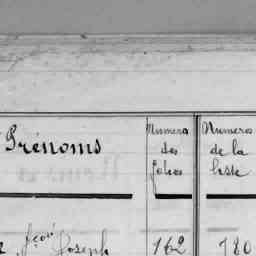 Prénoms
Numeros
des
folios
Numeros
de la
liste
Joseph 162 780